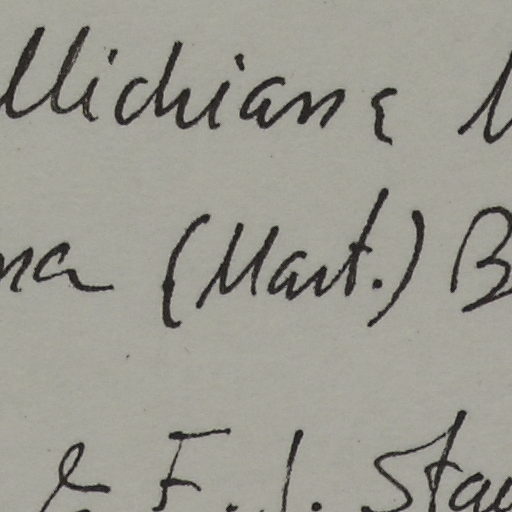 llichiana
na (Mart.) B
& F. J. Stau